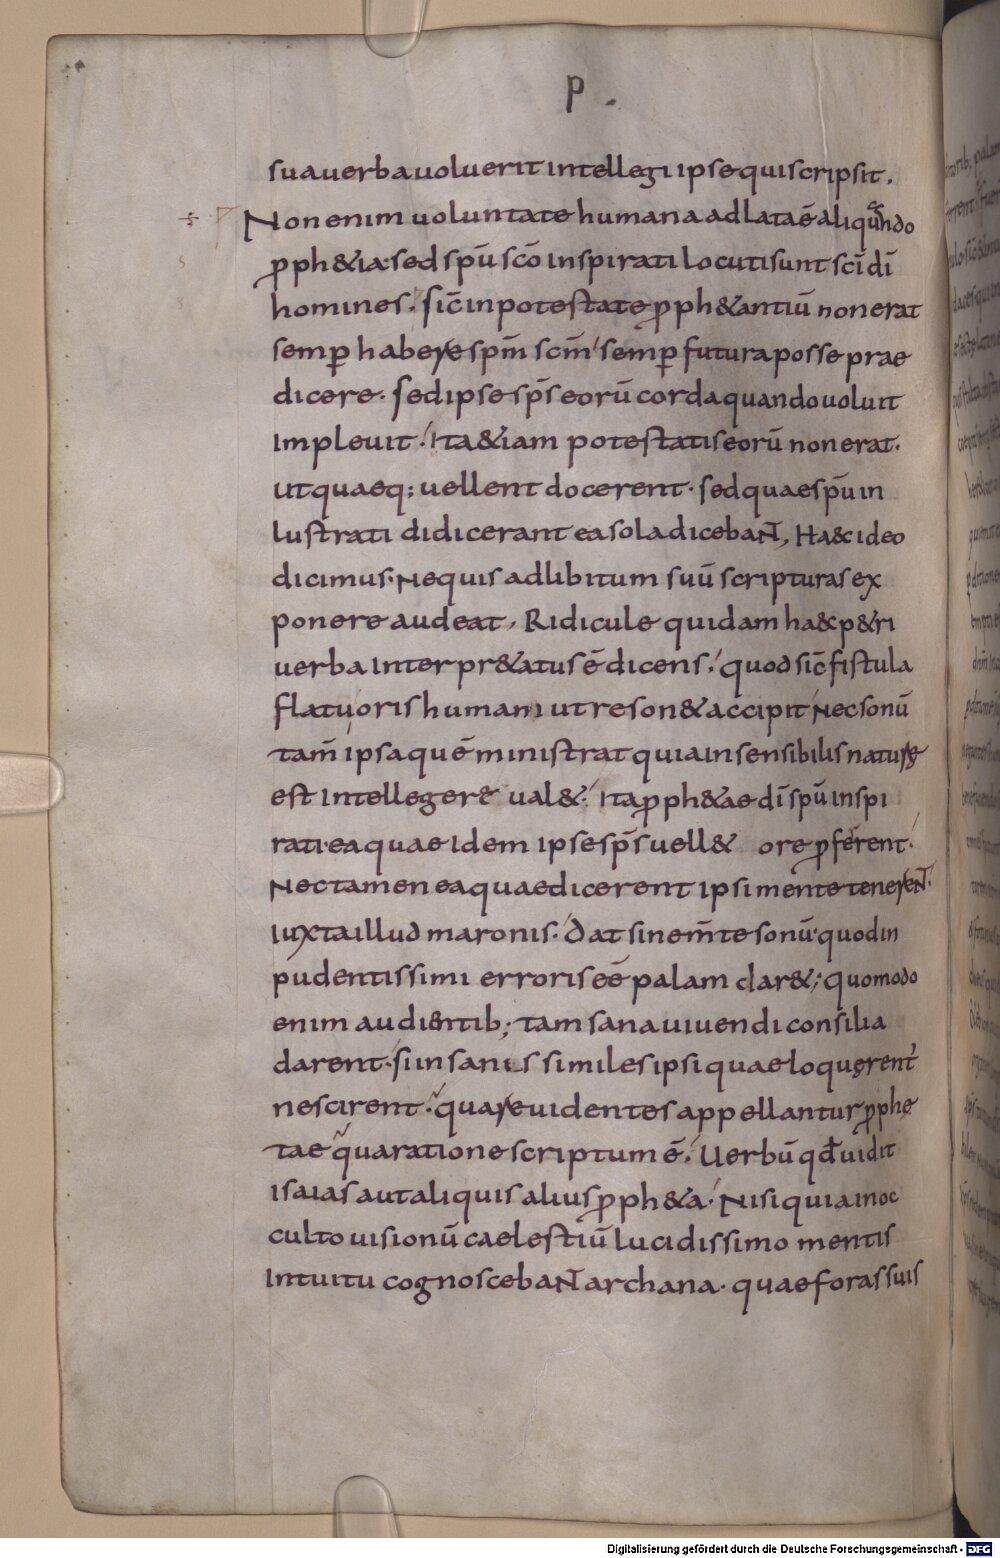 P .
sua uerba uoluerit intellegi ipse qui scripsit.
Non enim uoluntate humana adlata ē aliquando
ꝓph&ia· sed spū scō inspirati locuti sunt scī dī
homines. sic̄ in potestate ꝓph&antiū non erat
semꝑ habere spm̄ scm̄ semꝑ futura posse prae
dicere. sed ipse sp̄s eorū corda quando uoluit
impleuit. Ita &iam potestatis eorū non erat.
ut quaeq; uellent docerent. sed quae spū in
lustrati didicerant ea sola dicebaɴᴛ, Ha&c ideo
dicimus. Ne quis ad libitum suū scripturas ex
ponere audeat. Ridicule quidam ha&c p&ri
uerba interpr&atus ē dicens. quod sic̄ fistula
flatū oris humani ut reson& accipit Nec sonū
tam̄ ipsa quē ministrat quia insensibilis naturę
est intellegere ual&. Ita ꝓph&ae dī spū inspi
rati· ea quae idem ipse sp̄s uell& ore ꝓferent.
Nec tamen ea quae dicerent ipsi mente tenereɴᴛ.
iuxta illud maronis. Dat sine m̄te sonū. quod in
pudentissimi erroris eē palam clar&; quomodo
enim audientib; tam sana uiuendi consilia
darent. si insanis similes ipsi quae loquerent̄
nescirent. quare uidentes appellantur ꝓphe
tae qua ratione scriptum ē. Uerbū qđ uidit
isaias aut aliquis alius ꝓph&a. Nisi quia in oc
culto uisionū caelestiū lucidissimo mentis
intuitu cognoscebaɴᴛ archana. quae foras suis
Digitalisierung gefördert durch die Deutsche Forschungsgemeinschaft - DFG